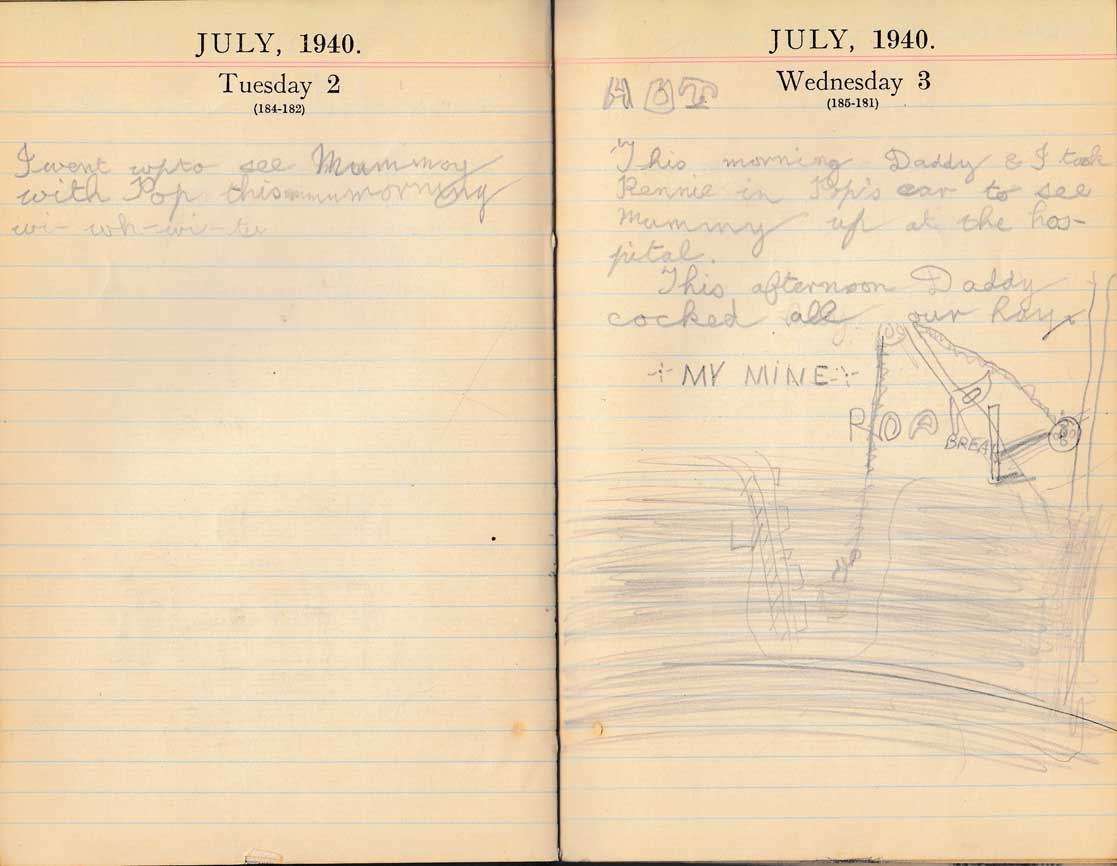 JULY, 1940.
Tuesday 2
(184-182)
I went up to see Mummy
with Pop this morning
wi- wh-wi-
JULY, 1940.
Wednesday 3
(185-181)
HOT
This morning Daddy & I took
Rennie in Pop's car to see
Mummy up at the hos-
pital.
This afternoon Daddy
cocked all our hay.
MY MINE
ROA
BREA